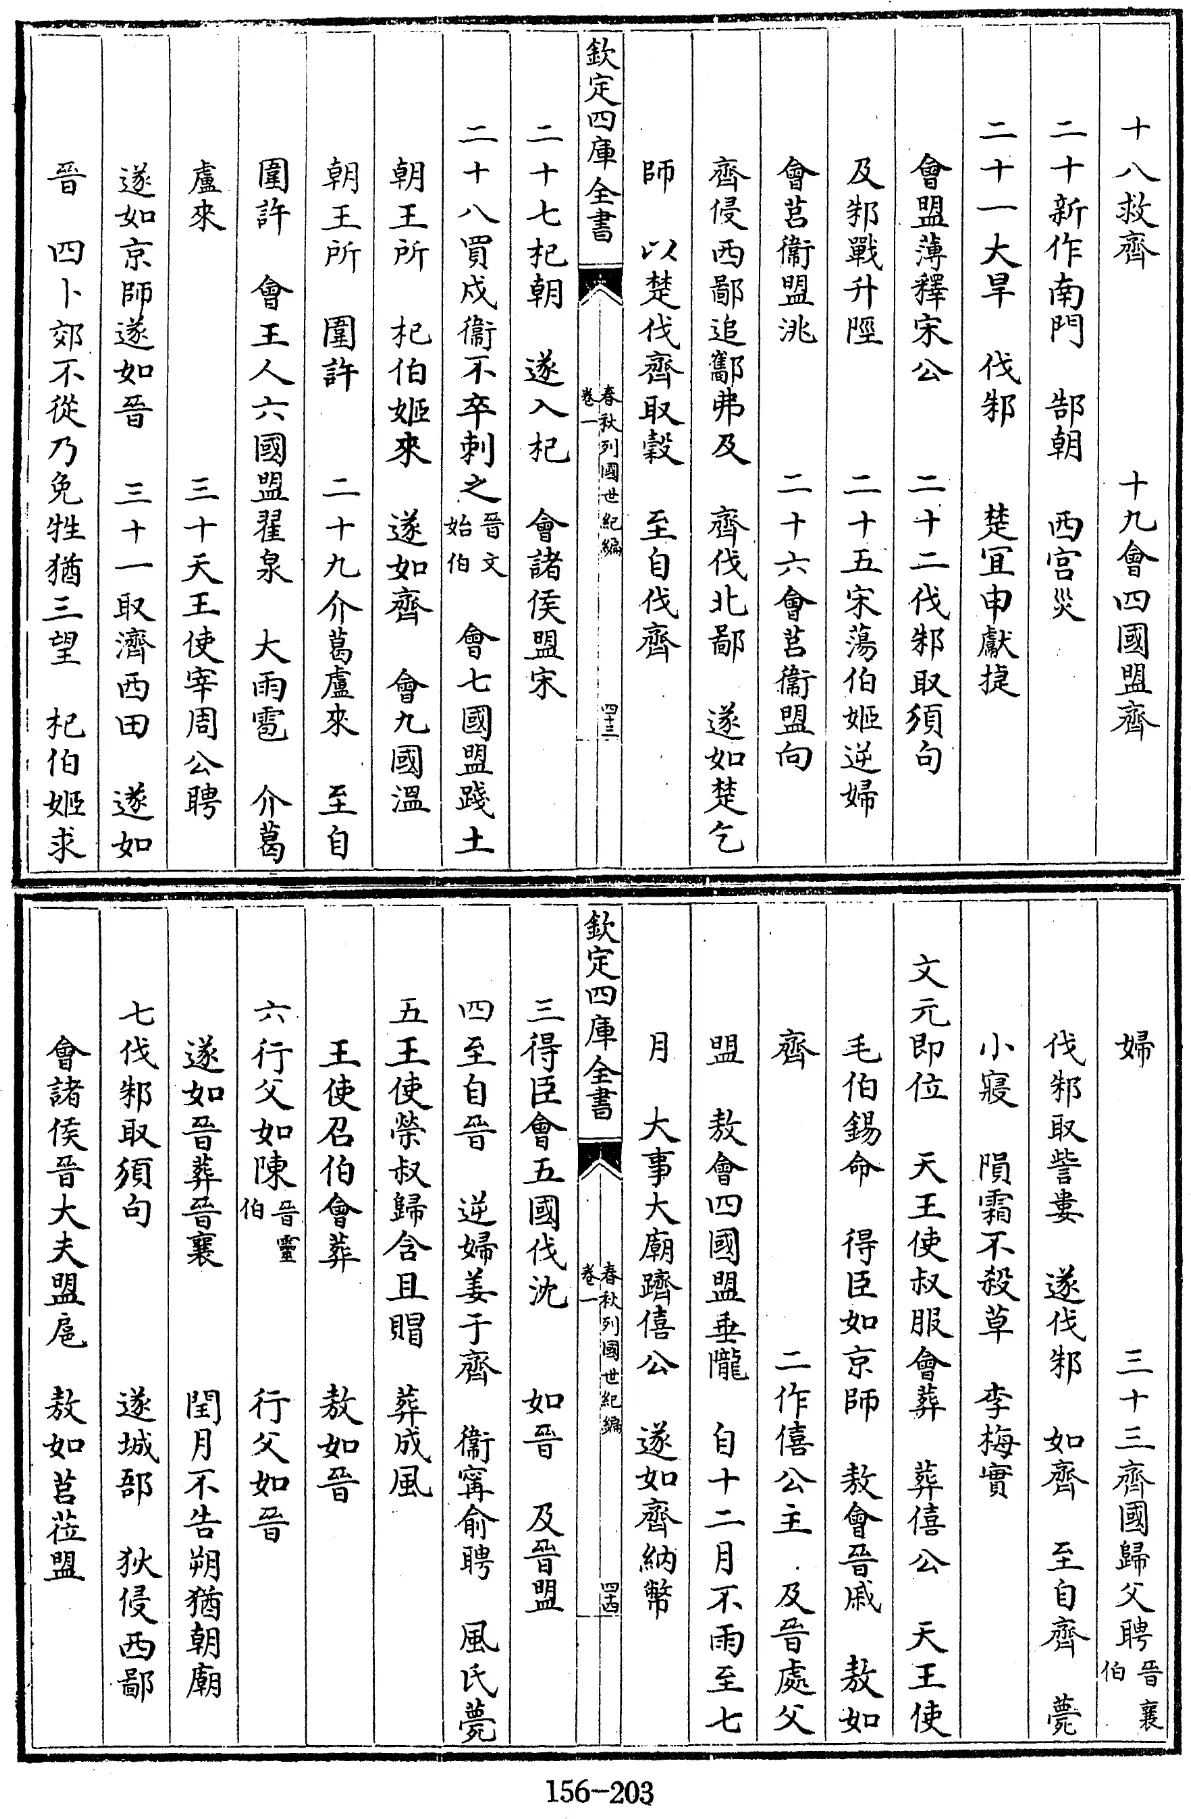 十八救齊　十九會四國盟齊
二十新作南門　郜朝　西宫災
二十一大旱　伐邾　楚宜申獻捷
會盟薄釋宋公　二十二伐邾取須句
及邾戰升陘　二十五宋蕩伯姬逆婦
會莒衞盟洮　二十六會莒衞盟向
齊侵西鄙追酅弗及　齊伐北鄙　遂如楚乞
師　以楚伐齊取穀　至自伐齊
欽定四庫全書
春秋列國世紀編
卷一
四十三
二十七杞朝　遂入杞　會諸侯盟宋
二十八買戍衞不卒刺之晉文始伯　會七國盟踐土
朝王所　杞伯姬來　遂如齊　會九國溫
朝王所　圍許　二十九介葛盧來　至自
圍許　會王人六國盟翟泉　大雨雹　介葛
盧來　三十天王使宰周公聘
遂如京師遂如晉　三十一取濟西田　遂如
晉　四卜郊不從乃免牲猶三望　杞伯姬求
婦　三十三齊國歸父聘晉襄伯
伐邾取訾婁　遂伐邾　如齊　至自齊　薨
小寢　隕霜不殺草　李梅實
文元即位　天王使叔服會葬　葬僖公　天王使
毛伯錫命　得臣如京師　敖會晉戚　敖如
齊　二作僖公主　及晉處父
盟　敖會四國盟垂隴　自十二月不雨至七
月　大事大廟躋僖公　遂如齊納幣
欽定四庫全書
春秋列國世紀編
卷一
四十四
三得臣會五國伐沈　如晉　及晉盟
四至自晉　逆婦姜于齊　衞甯俞聘　風氏薨
五王使榮叔歸含且賵　葬成風
王使召伯會葬　敖如晉
六行父如陳晉靈伯　行父如晉
遂如晉葬晉襄　閏月不告朔猶朝廟
七伐邾取須句　遂城郚　狄侵西鄙
會諸侯晉大夫盟扈　敖如莒蒞盟
156-203